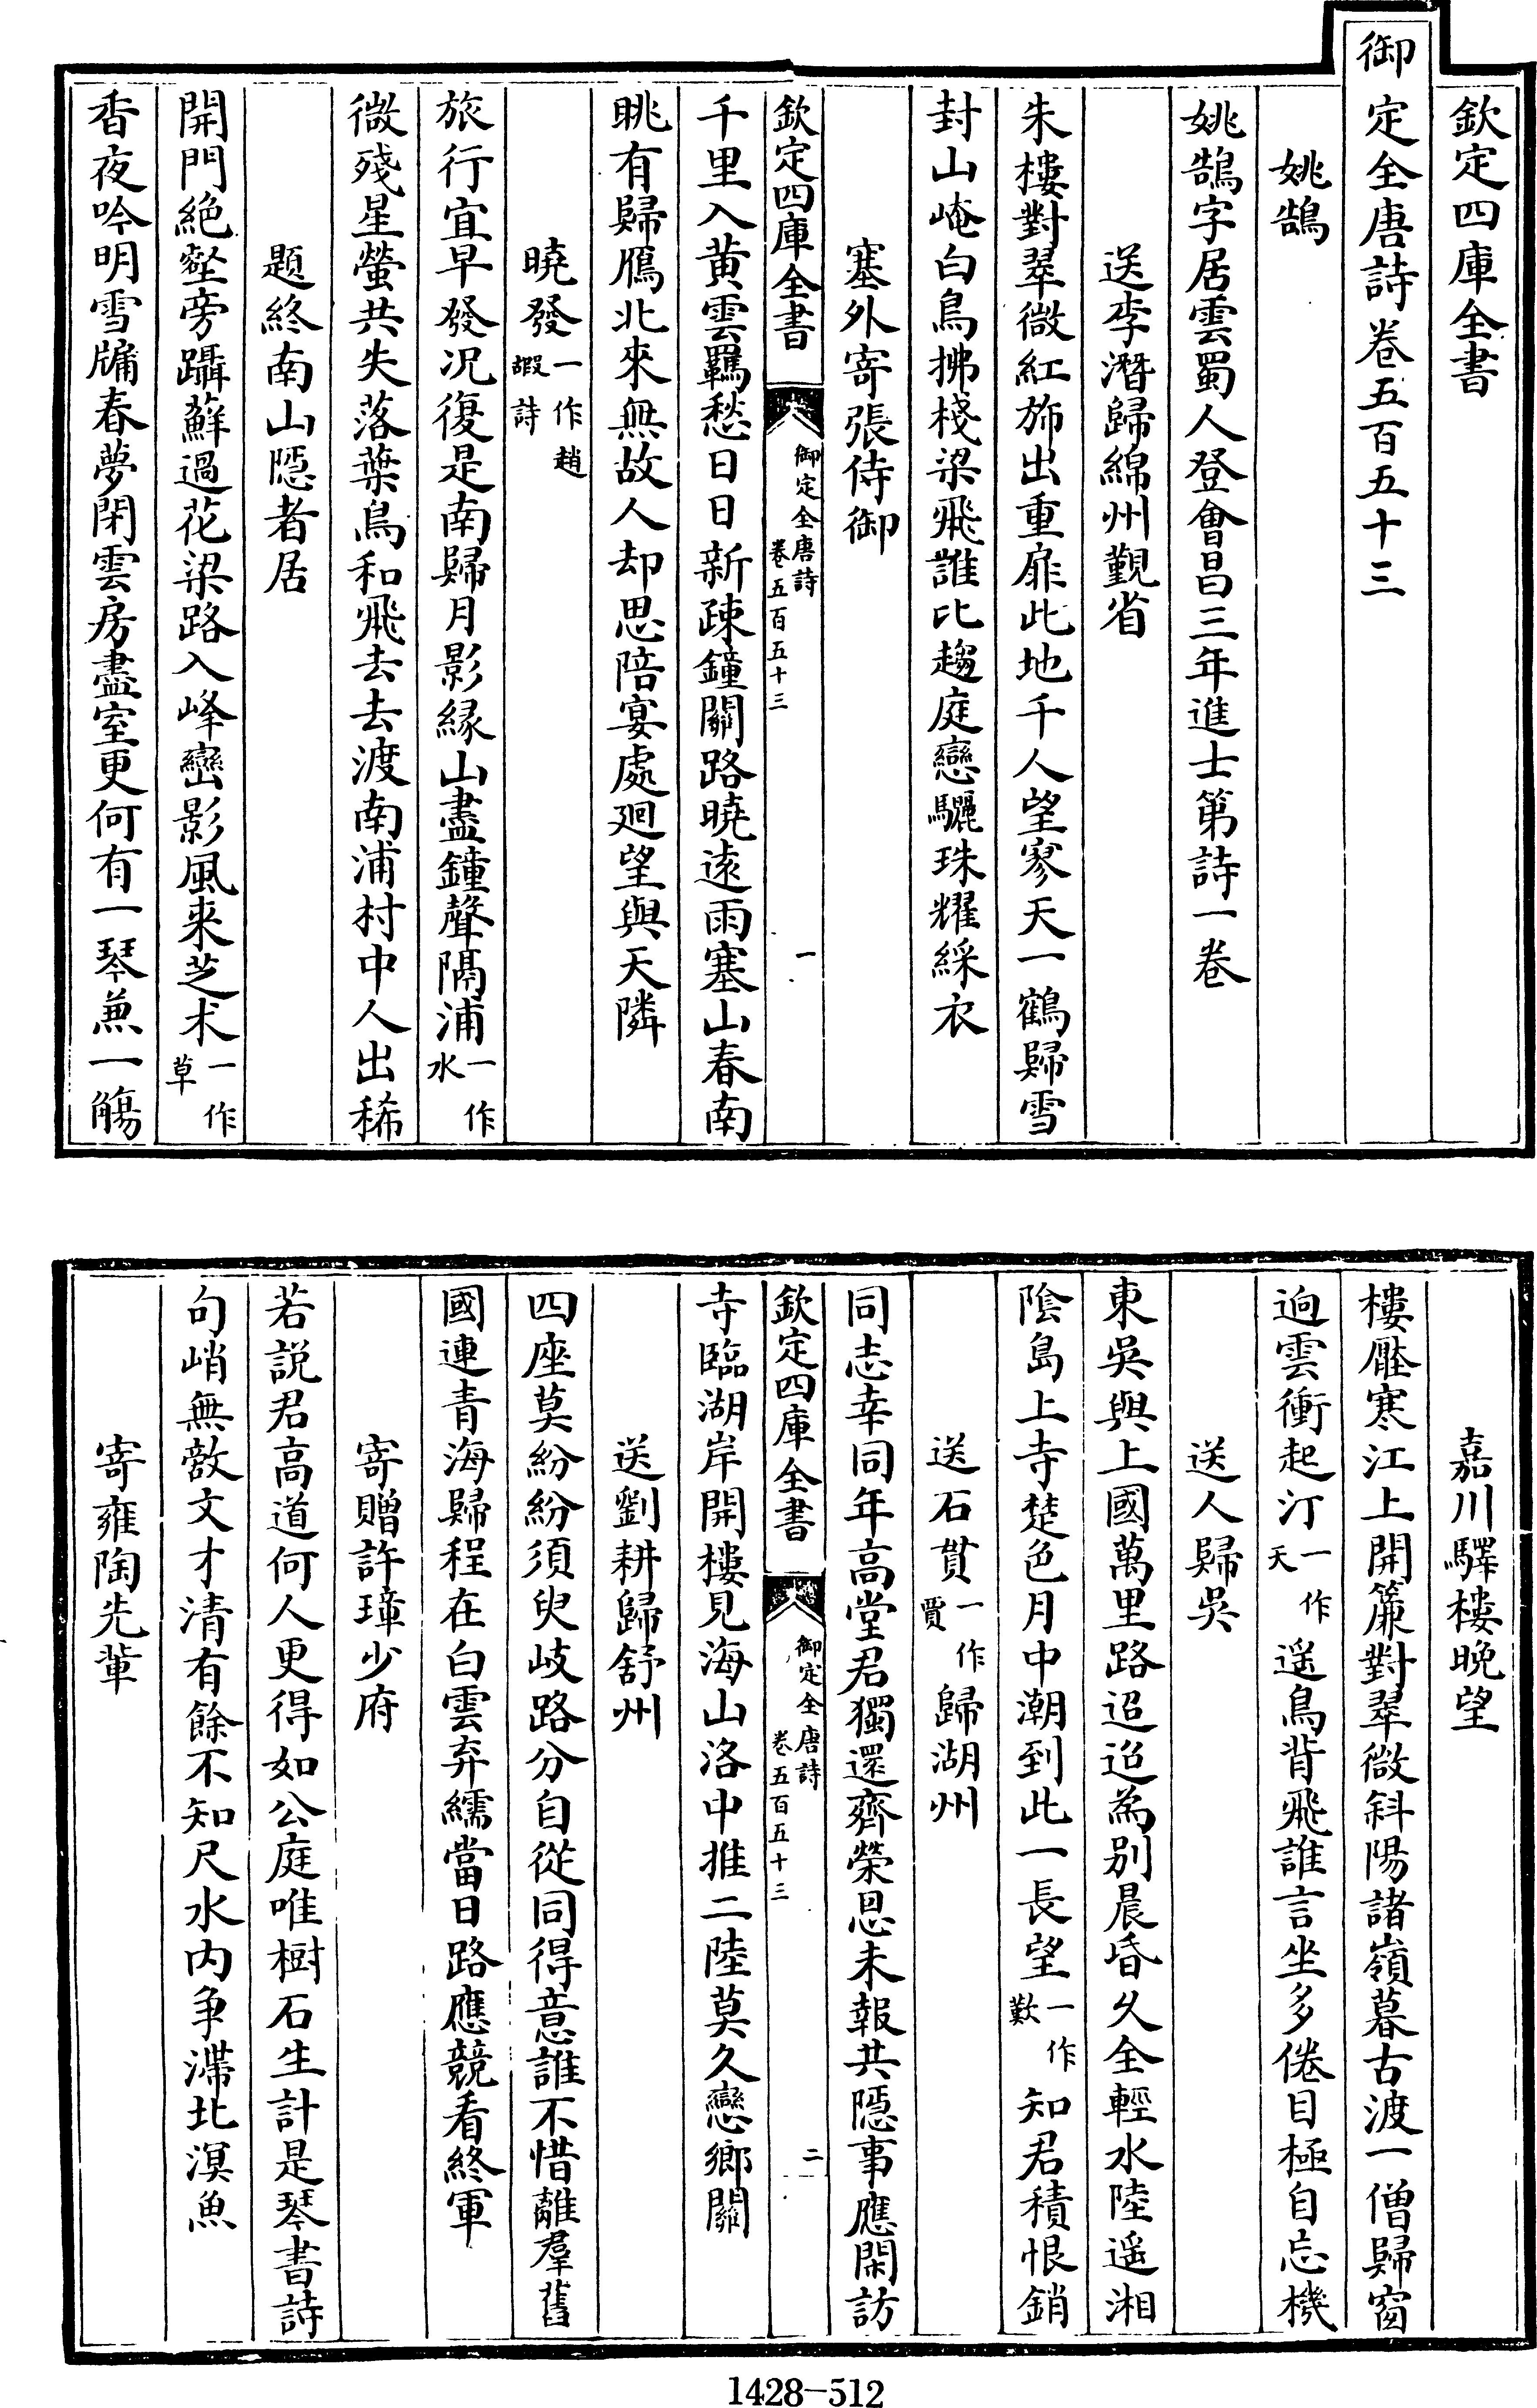 欽定四庫全書
御定全唐詩卷五百五十三
姚鵠
姚鵠字居雲蜀人登會昌三年進士第詩一卷
送李潛歸綿州覲省
朱樓對翠微紅斾出重扉此地千人望寥天一鶴歸雪
封山崦白鳥拂棧梁飛誰比趨庭戀驪珠耀綵衣
塞外寄張侍御
欽定四庫全書 御定全唐詩 卷五百五十三 一
千里入黄雲羈愁日日新疎鐘關路曉逺雨塞山春南
眺有歸鴈北來無故人却思陪宴處廻望與天隣
曉發一作趙嘏詩
旅行宜早發况復是南歸月影緣山盡鐘聲隔浦一作水
微殘星螢共失落葉鳥和飛去去渡南浦村中人出稀
題終南山隠者居
開門絶壑旁躡蘚過花梁路入峰巒影風来芝术一作草
香夜吟明雪牖春夢閉雲房盡室更何有一琴兼一觴
嘉川驛樓晚望
樓壓寒江上開簾對翠微斜陽諸嶺暮古渡一僧歸窗
逈雲衝起汀一作天遥鳥背飛誰言坐多倦目極自忘機
送人歸吳
東吳與上國萬里路迢迢為别晨昏久全輕水陸遥湘
隂島上寺楚色月中潮到此一長望一作歎知君積恨銷
送石貫一作賈歸湖州
同志幸同年高堂君獨還齊榮恩未報共隠事應閑訪
欽定四庫全書 御定全唐詩 卷五百五十三 二
寺臨湖岸開樓見海山洛中推二陸莫久戀鄉關
送劉耕歸舒州
四座莫紛紛須臾岐路分自從同得意誰不惜離羣舊
國連青海歸程在白雲弃繻當日路應競看終軍
寄贈許璋少府
若説君高道何人更得如公庭唯樹石生計是琴書詩
句峭無敵文才清有餘不知尺水内争滯北溟魚
寄雍陶先輩
1428-512